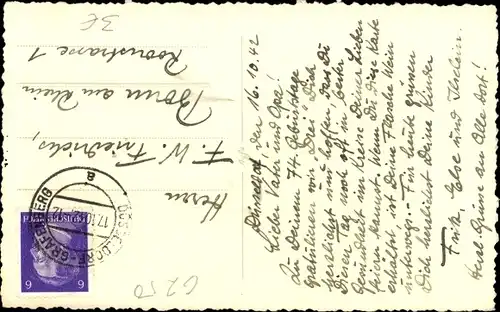 3€
Düsseldorf den 16.10.42
Lieber Vater und Opa!
Zu Deinem 74. Geburtstage
gratulieren wir Drei Dich
herzlichst und hoffen, dass Du
diesen Tag noch oft in bester
Gesundheit im Kreise Deiner Lieben
feiern kannst. Wenn Du diese Karte
erhältst, ist eine Flasche Wein
unterwegs. - Für heute grüssen
Dich herzlichst Deine Kinder
Fritz, Else und
Herzl. Grüsse an Alle dort!
Herrn
F. W. Friedrichs,
Bonn am Rhein
Roonstrasse 1
DÜSSELDORF-GRAFENBERG
a
17.10.
6
6
6250